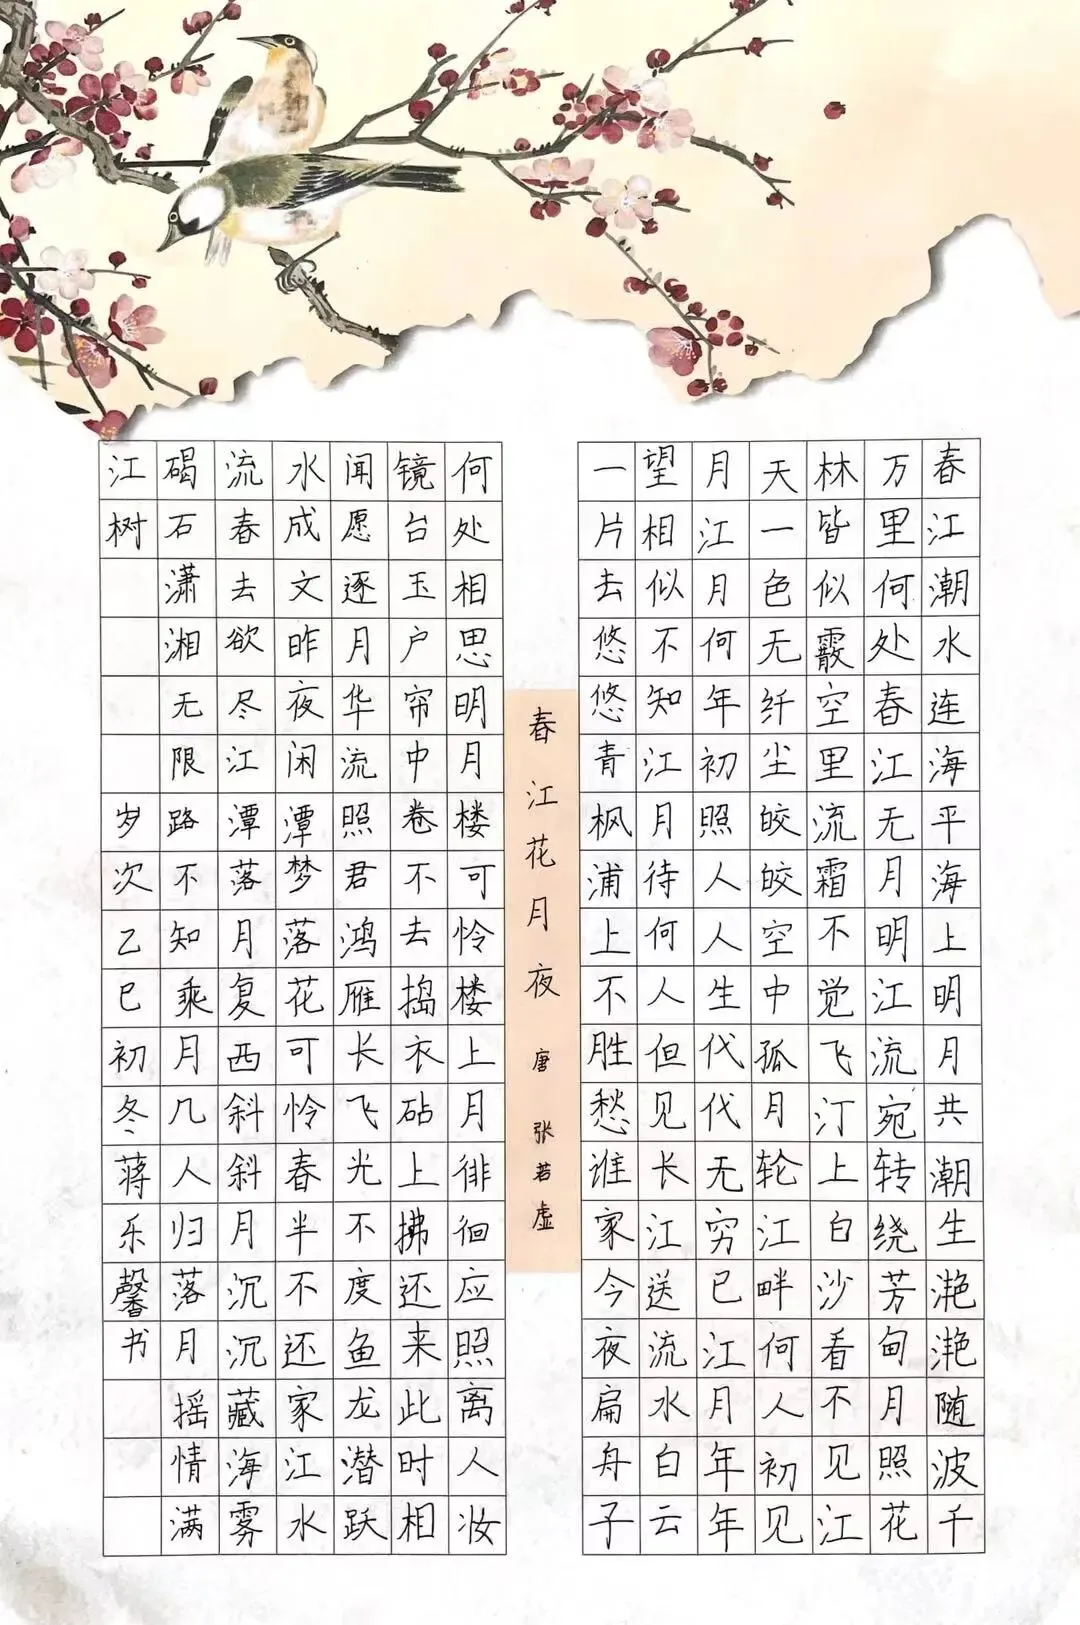 春江潮水连海平海上明月共潮生滟滟随波千
万里何处春江无月明江流宛转绕芳甸月照花
林皆似霰空里流霜不觉飞汀上白沙看不见江
天一色无纤尘皎皎空中孤月轮江畔何人初见
月江月何年初照人人生代代无穷已江月年年
望相似不知江月待何人但见长江送流水白云
一片去悠悠青枫浦上不胜愁谁家今夜扁舟子
春江花月夜 唐 张若虚
何处相思明月楼可怜楼上月徘徊应照离人妆
镜台玉户帘中卷不去捣衣砧上拂还来此时相
闻愿逐月华流照君鸿雁长飞光不度鱼龙潜跃
水成文昨夜闲潭梦落花可怜春半不还家江水
流春去欲尽江潭落月复西斜斜月沉沉藏海雾
碣石潇湘无限路不知乘月几人归落月摇情满
江树 岁次乙巳初冬蒋乐馨书